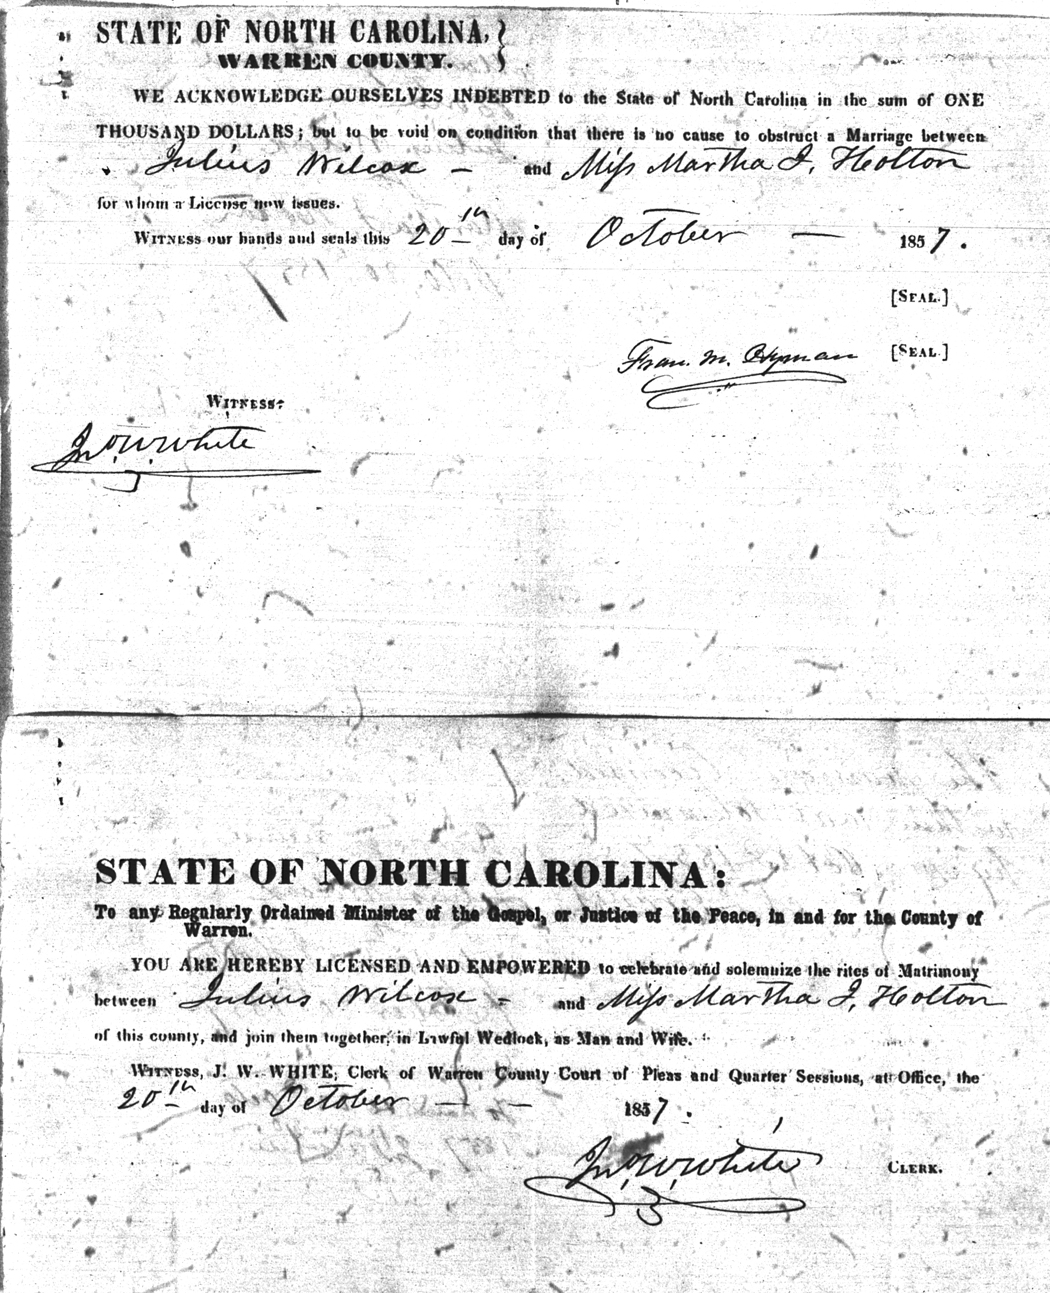 STATE OF NORTH CAROLINA,
WARREN COUNTY.
WE ACKNOWLEDGE OURSELVES INDEBTED to the State of North Carolina in the sum of ONE
THOUSAND DOLLARS; but to be void on condition that there is no cause to obstruct a Marriage between
Julius Wilcox — and Miss Martha J, Holton
for whom a License now issues.
WITNESS our hands and seals this 20th day of October — 1857.
[SEAL.]
Fran. M. Hyman [SEAL]
WITNESS:
Jno. W. White
STATE OF NORTH CAROLINA:
To any Regularly Ordained Minister of the Gospel, or Justice of the Peace, in and for the County of
Warren.
YOU ARE HEREBY LICENSED AND EMPOWERED to celebrate and solemnize the rites of Matrimony
between Julius Wilcox - and Miss Martha J, Holton
of this county, and join them together, in Lawful Wedlock, as Man and Wife.
WITNESS, J. W. WHITE, Clerk of Warren County Court of Pleas and Quarter Sessions, at Office, the
20th day of October — — 1857.
Jno. W. White CLERK.